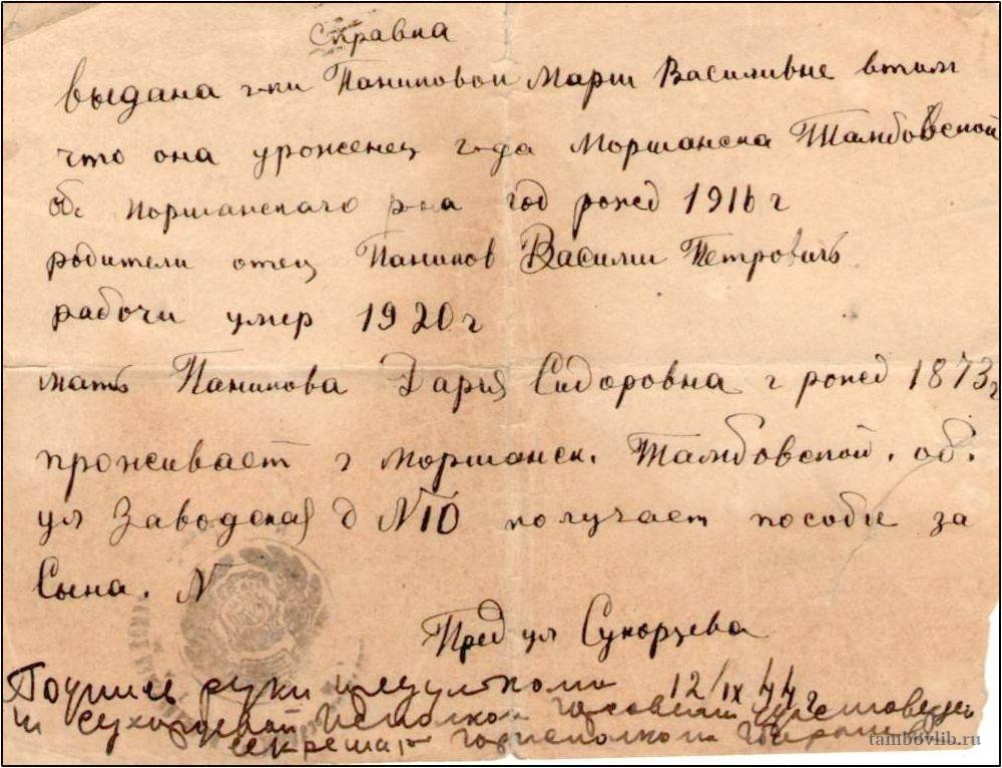 Справка
выдана г-ки Паниковой Марии Василивне втом
что она уроженец г-да Моршанска Тамбовской
об. Моршанского р-на год рожед 1916 г
родители отец Паников Василии Петровичь
рабочи умер 1920 г
мать Паникова Дарья Сидоровна г рожед 1873 г
проживает г Моршанск. Тамбовской. об.
ул Заводская д N 10 получает пособие за
Сына. N
Пред ул Сукорцева
Подпись руки предулкома 12/IX 44 г
исполком
секретарь горисполкома
tambovlib.ru